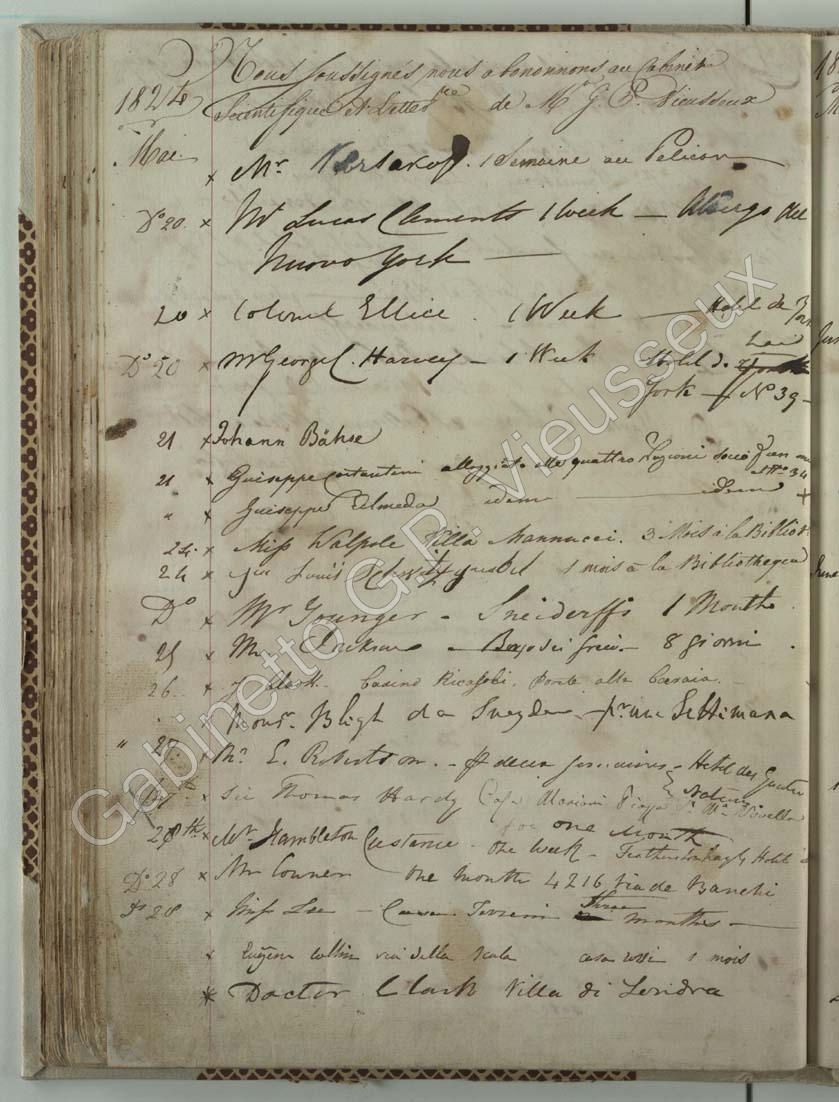 Nous soussignés nous abonnons au Cabinet
1824 Scientifique et Litter.re de Mr G. P. Vieusseux
Mai. x Mr. Korsakof. 1 Semaine au Pelican
Do 20 x Mr Lucas Clements 1 week — Albergo del
Nuovo York —
20 x Colonel Ellice 1 Week — Hotel de York
Do 20 x Mr George C. Harvey — 1 Week Hotel d.
York — No 39 —
21 x Johann Bähse
21 x Guiseppe alloggiato alle quattro Nazioni
" x Guiseppe idem — idem +
24. x Miss Walpole Villa Mannucci. 3 Mois à la Biblioth
24 x Louis 1 mois à la Bibliotheque
Do x Mr Younger - Sneiderffs 1 Month
25 x — 8 giorni
26 x J Clark. Casino Ricasoli. Ponte alla Caraia.
x Monsr. Bligh da — pr una Settimana
" 27. x E. Robertson. — deux semaines — Hotel des Quatre
Nations
Sir Thomas Hardy Casa Marioni Piazza Sta Ma Novella
for one Month
28th x Mr Hambleton Custance - One Week - Hotel
Do 28 x Mr Conner One Month 4216 Via de Banchi
Do 28 x Miss Lee — Casa Three months —
x Eugène Collin via della Scala casa 1 mois
x Doctor Clark Villa di Londra
Gabinetto G.P. Vieusseux